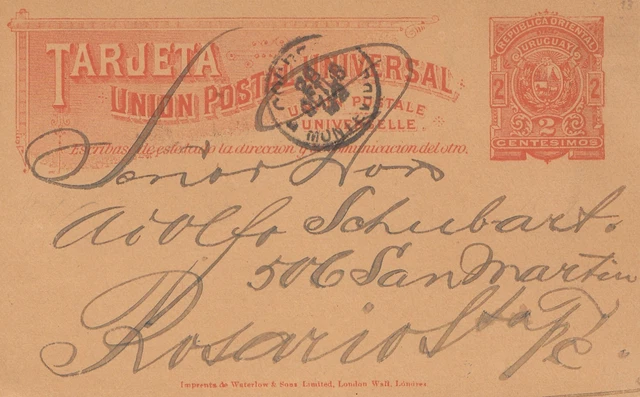 TARJETA
UNION POSTAL UNIVERSAL
UNION POSTALE
UNIVERSELLE.
Escribase de este lado la direccion y la comunicacion del otro.
REPUBLICA ORIENTAL
URUGUAY
2 2
2
CENTESIMOS
CORREOS
MONTEVIDEO
Señor Don
Adolfo Schubart.
506 San Martin
Rosario Sta Fé.
Imprenta de Waterlow & Sons Limited, London Wall, Londres